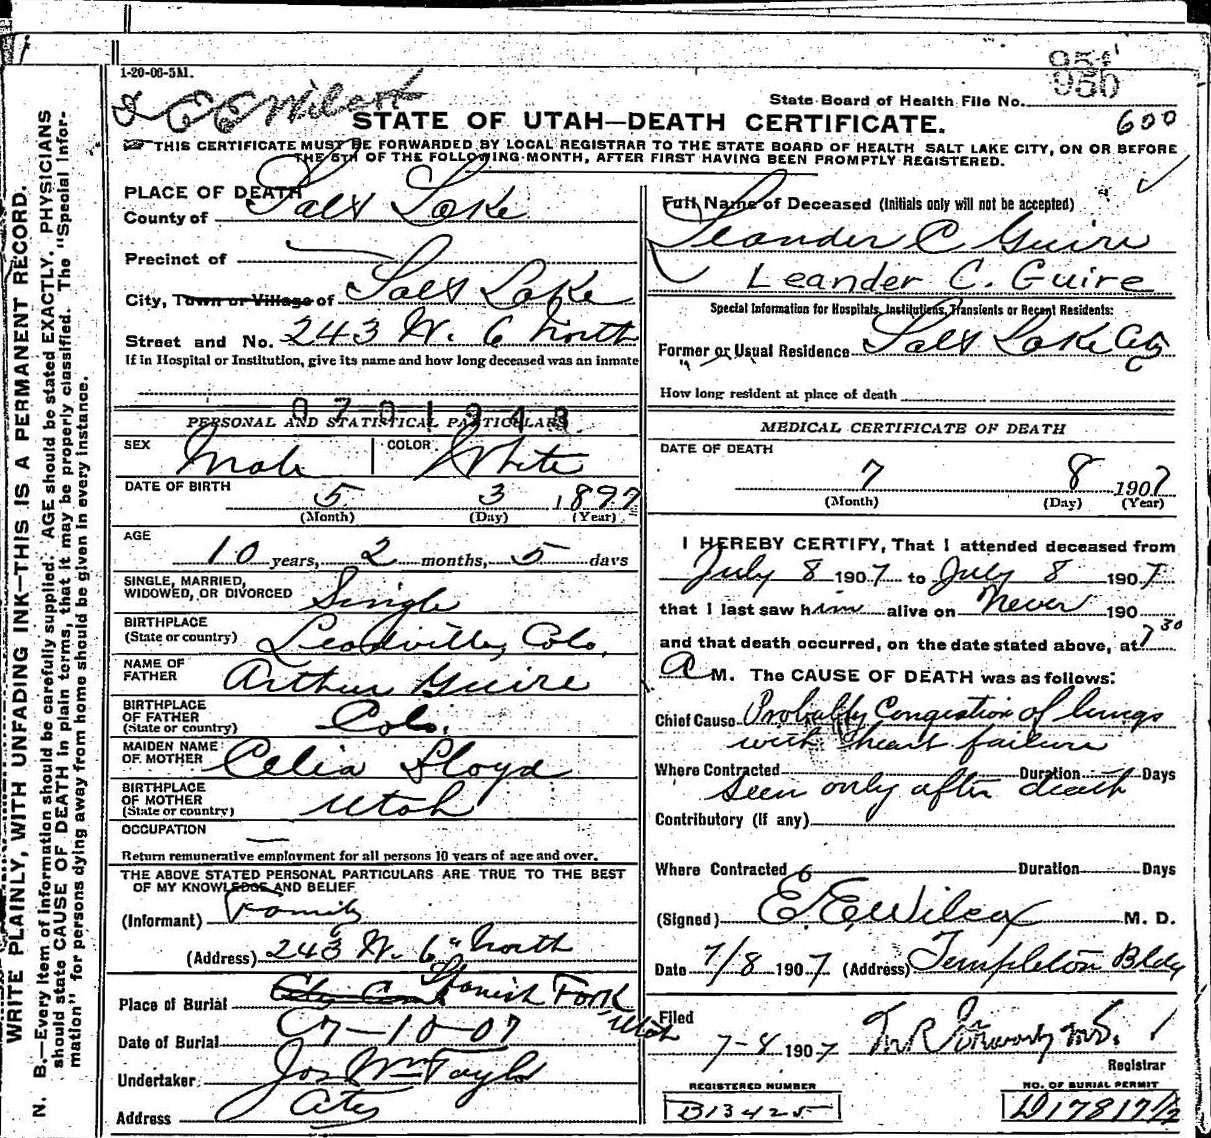 WRITE PLAINLY, WITH UNFADING INK—THIS IS A PERMANENT RECORD.
N. B.—Every item of information should be carefully supplied. AGE should be stated EXACTLY. PHYSICIANS
should state CAUSE OF DEATH in plain terms, that it may be properly classified. The "Special Infor-
mation" for persons dying away from home should be given in every instance.
1-20-06-5M.
E E Wilcox
950
State Board of Health File No.
600
STATE OF UTAH—DEATH CERTIFICATE.
THIS CERTIFICATE MUST BE FORWARDED BY LOCAL REGISTRAR TO THE STATE BOARD OF HEALTH SALT LAKE CITY, ON OR BEFORE
THE 5TH OF THE FOLLOWING MONTH, AFTER FIRST HAVING BEEN PROMPTLY REGISTERED.
PLACE OF DEATH
County of Salt Lake
Precinct of
City, Town or Village of Salt Lake
Street and No. 243 W. 6 North
If in Hospital or Institution, give its name and how long deceased was an inmate
0701943
PERSONAL AND STATISTICAL PARTICULARS
SEX Male COLOR White
DATE OF BIRTH 5 3 1897
(Month) (Day) (Year)
AGE 10 years, 2 months, 5 days
SINGLE, MARRIED,
WIDOWED, OR DIVORCED Single
BIRTHPLACE
(State or country) Leadville, Colo.
NAME OF
FATHER Arthur Guire
BIRTHPLACE
OF FATHER
(State or country) Colo.
MAIDEN NAME
OF MOTHER Celia Lloyd
BIRTHPLACE
OF MOTHER
(State or country) Utah
OCCUPATION —
Return remunerative employment for all persons 10 years of age and over.
THE ABOVE STATED PERSONAL PARTICULARS ARE TRUE TO THE BEST
OF MY KNOWLEDGE AND BELIEF
(Informant) Family
(Address) 243 W. 6" North
Place of Burial City Cem Spanish Fork Utah
Date of Burial 7-10-07
Undertaker Jos Wm Taylor
Address City
Full Name of Deceased (Initials only will not be accepted)
Leander C Guire
Leander C. Guire
Special Information for Hospitals, Institutions, Transients or Recent Residents:
Former or Usual Residence Salt Lake City
How long resident at place of death
MEDICAL CERTIFICATE OF DEATH
DATE OF DEATH
7 8 1907
(Month) (Day) (Year)
I HEREBY CERTIFY, That I attended deceased from
July 8 1907 to July 8 1907
that I last saw him alive on Never 190
and that death occurred, on the date stated above, at 7 30
A M. The CAUSE OF DEATH was as follows:
Chief Cause Probably Congestion of lungs
with heart failure
Where Contracted Duration Days
Seen only after death
Contributory (If any)
Where Contracted Duration Days
(Signed) E. E. Wilcox M. D.
Date 7/8 1907 (Address) Templeton Bldg
Filed
7-8 1907
Registrar
REGISTERED NUMBER
B13425
NO. OF BURIAL PERMIT
D17817½